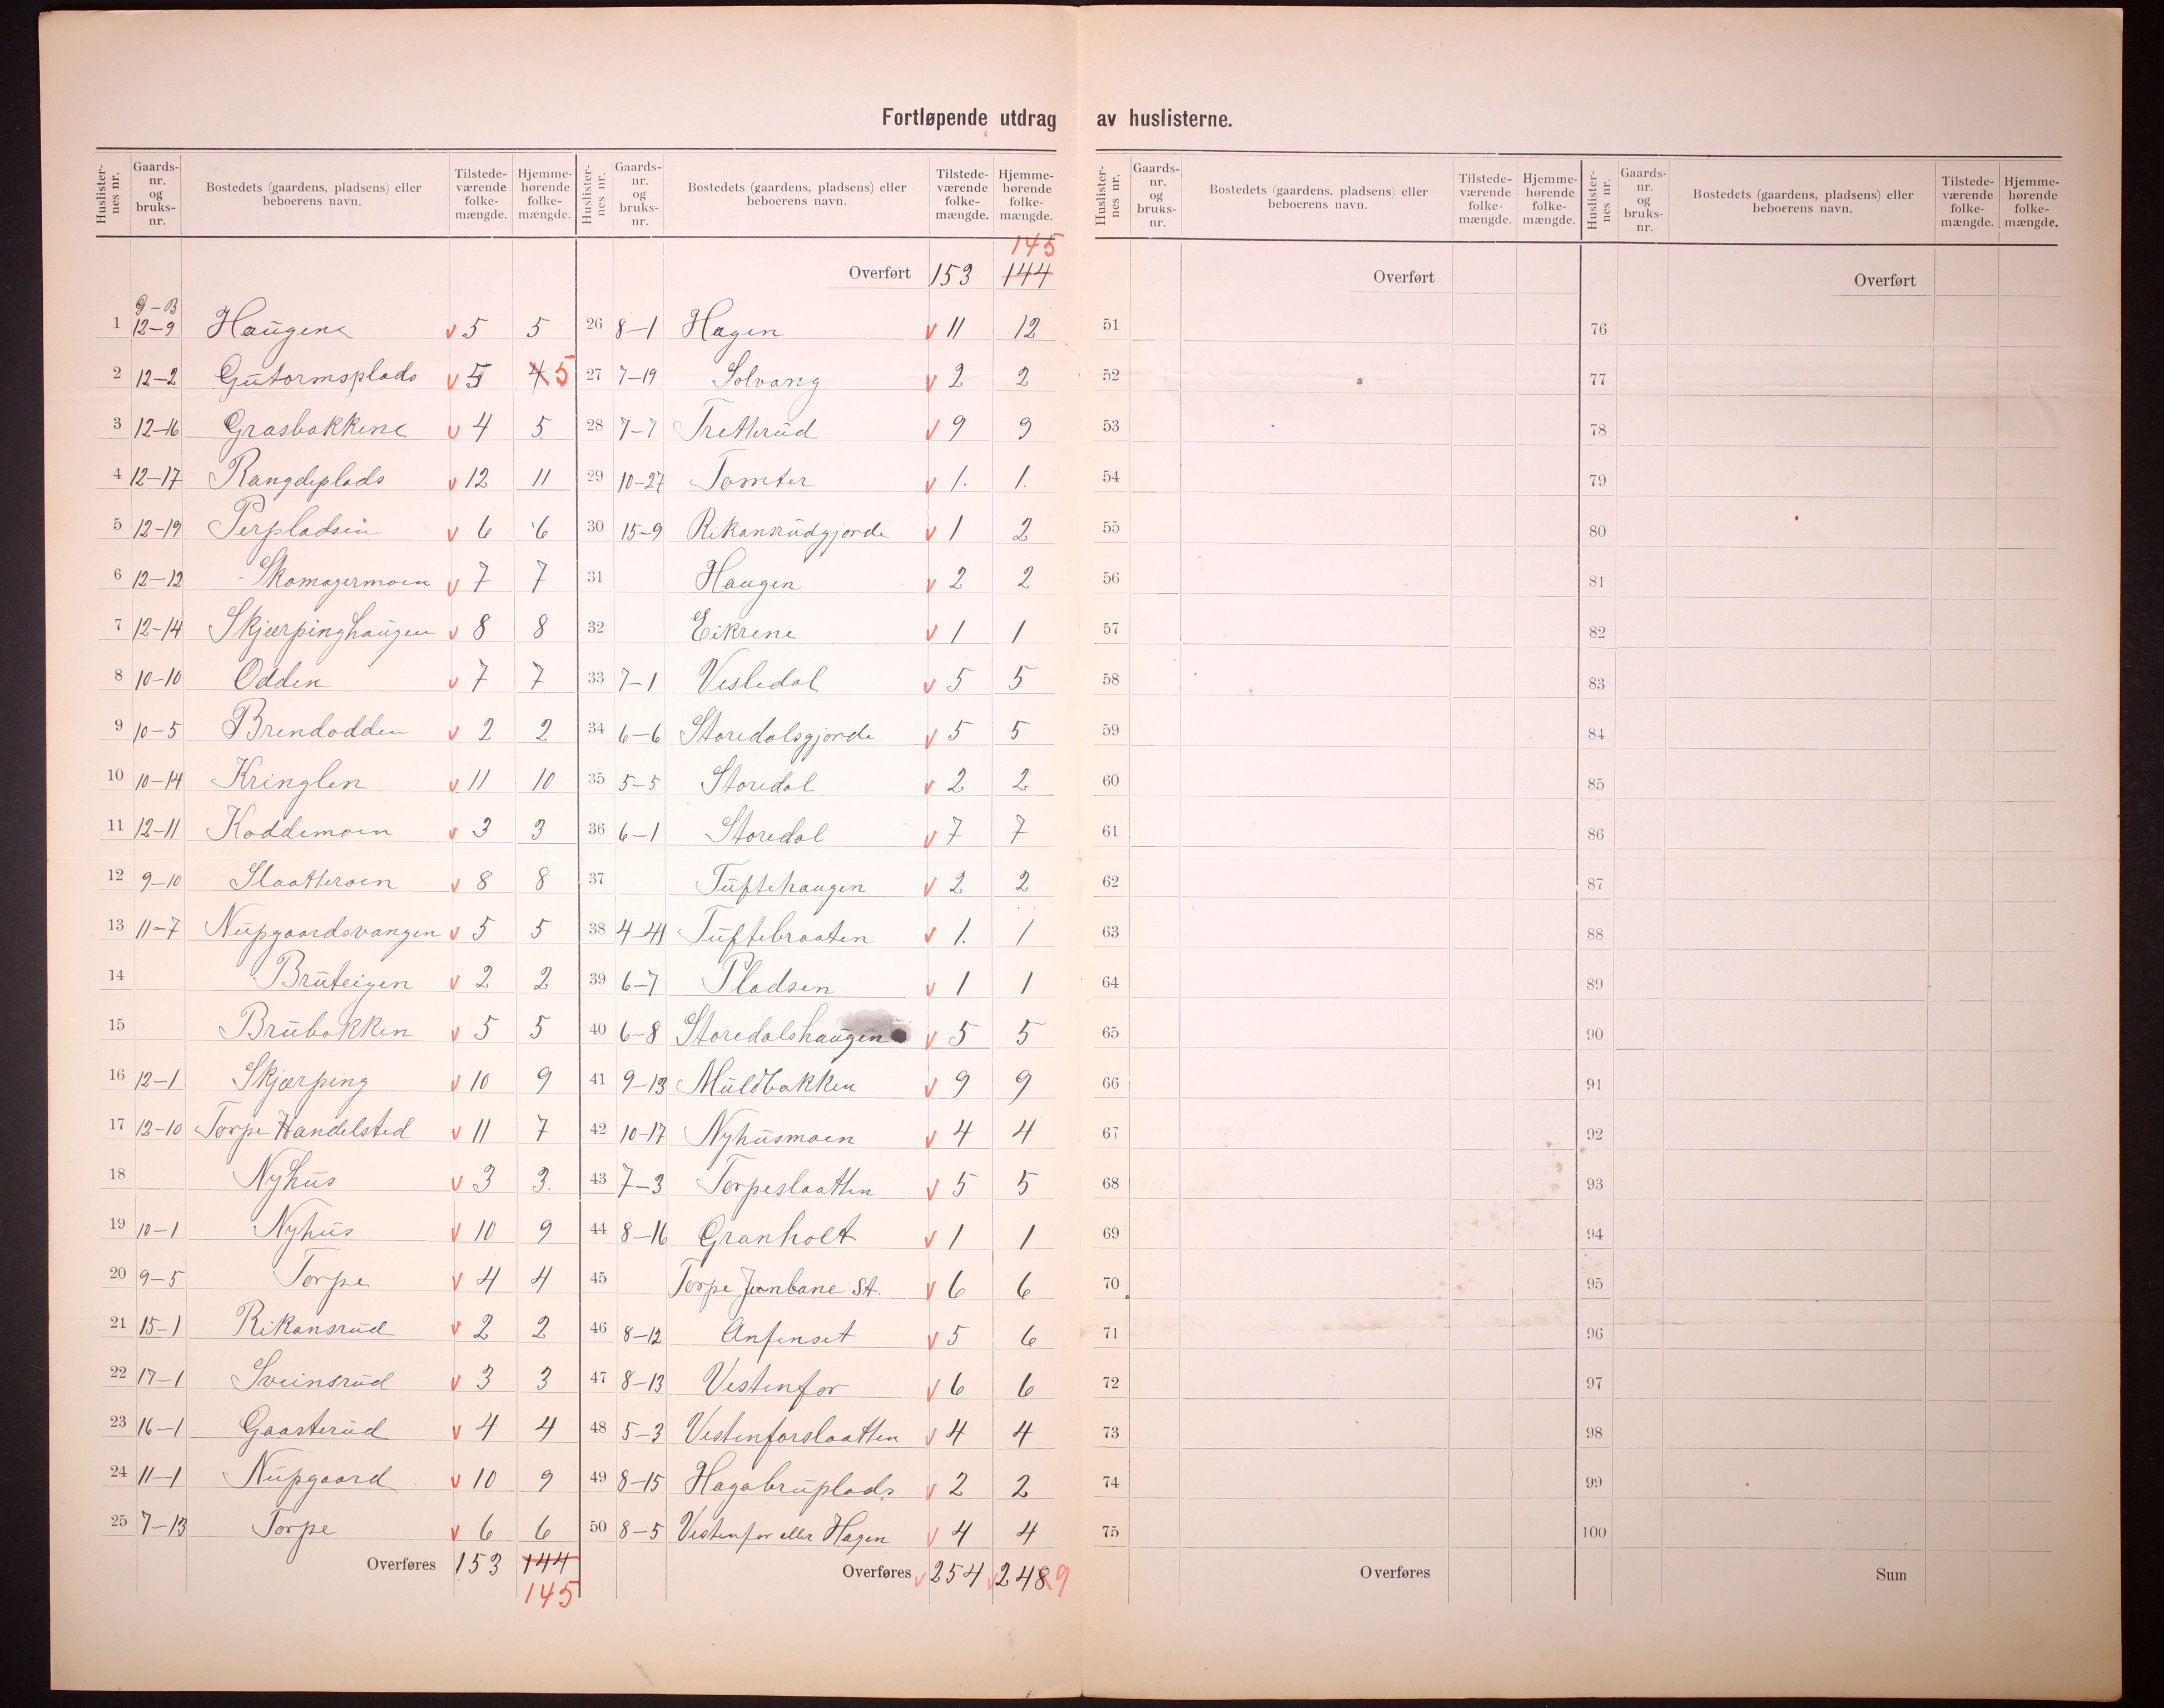 Fortløpende utdrag av huslisterne.
Huslister-nes nr. Gaards-nr. og bruks-nr. Bostedets (gaardens, pladsens) eller beboerens navn. Tilstede-værende folke-mængde. Hjemme-hørende folke-mængde.
9-13
1 12-9 Haugene v 5 5
2 12-2 Gutormsplads v 5 4 5
3 12-16 Grasbakkene v 4 5
4 12-17 Rangdeplads v 12 11
5 12-19 Perpladsen v 6 6
6 12-12 Skomagermoen v 7 7
7 12-14 Skjærpinghaugen v 8 8
8 10-10 Odden v 7 7
9 10-5 Brendodden v 2 2
10 10-14 Kringlen v 11 10
11 12-11 Koddemoen v 3 3
12 9-10 Slaatteroen v 8 8
13 11-7 Nupgaardsvangen v 5 5
14 Bruteigen v 2 2
15 Brubakken v 5 5
16 12-1 Skjærping v 10 9
17 12-10 Torpe Handelsted v 11 7
18 Nyhus v 3 3.
19 10-1 Nyhus v 10 9
20 9-5 Torpe v 4 4
21 15-1 Rikansrud v 2 2
22 17-1 Sveinsrud v 3 3
23 16-1 Gaasterud v 4 4
24 11-1 Nupgaard v 10 9
25 7-13 Torpe v 6 6
Overføres 153 144
145
Huslister-nes nr. Gaards-nr. og bruks-nr. Bostedets (gaardens, pladsens) eller beboerens navn. Tilstede-værende folke-mængde. Hjemme-hørende folke-mængde.
145
Overført 153 144
26 8-1 Hagen v 11 12
27 7-19 Solvang v 2 2
28 7-7 Tretterud v 9 9
29 10-27 Tomter v 1. 1.
30 15-9 Rikansrudgjorde v 1 2
31 Haugen v 2 2
32 Eikrene v 1 1
33 7-1 Vesledal v 5 5
34 6-6 Storedalsgjorde v 5 5
35 5-5 Storedal v 2 2
36 6-1 Storedal v 7 7
37 Tuftehaugen v 2 2
38 4-41 Tuftebraaten v 1. 1
39 6-7 Pladsen v 1 1
40 6-8 Storedalshaugen v 5 5
41 9-13 Muldbakken v 9 9
42 10-17 Nyhusmoen v 4 4
43 7-3 Torpeslaatten v 5 5
44 8-16 Granholt v 1 1
45 Torpe Jernbane St. v 6 6
46 8-12 Anfinset v 5 6
47 8-13 Vestenfor v 6 6
48 5-3 Vestenforslaatten v 4 4
49 8-15 Hagabruplads v 2 2
50 8-5 Vestenfor eller Hagen v 4 4
Overføres v 254 v 248 9
Huslister-nes nr. Gaards-nr. og bruks-nr. Bostedets (gaardens, pladsens) eller beboerens navn. Tilstede-værende folke-mængde. Hjemme-hørende folke-mængde.
Overført
51
52
53
54
55
56
57
58
59
60
61
62
63
64
65
66
67
68
69
70
71
72
73
74
75
Overføres
Huslister-nes nr. Gaards-nr. og bruks-nr. Bostedets (gaardens, pladsens) eller beboerens navn. Tilstede-værende folke-mængde. Hjemme-hørende folke-mængde.
Overført
76
77
78
79
80
81
82
83
84
85
86
87
88
89
90
91
92
93
94
95
96
97
98
99
100
Sum